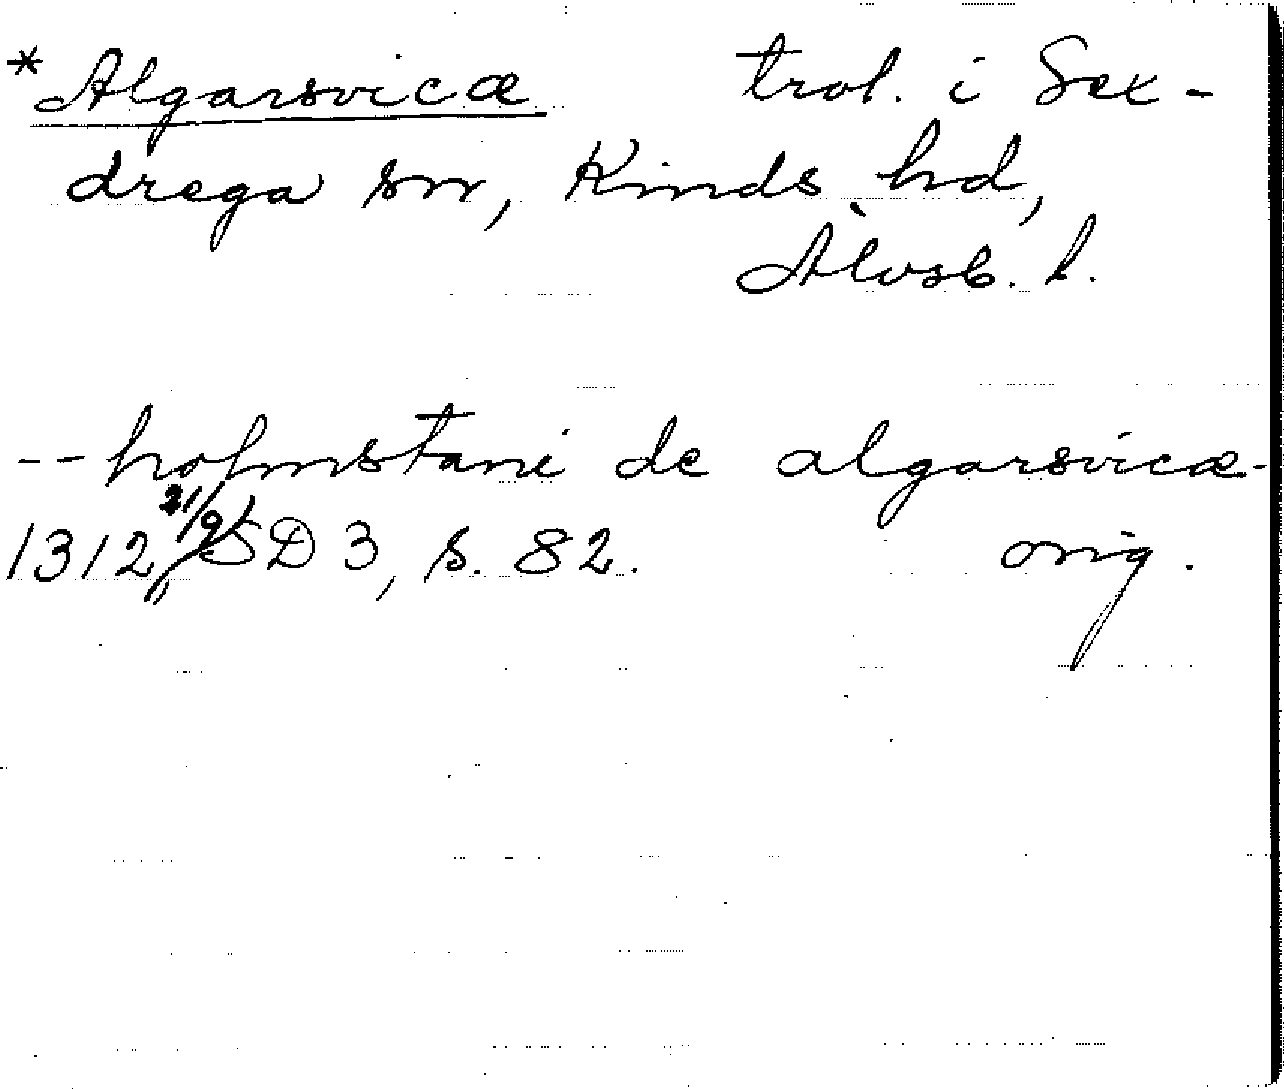 *Algarsvicæ trol. i Sex-
drega sn, Kinds hd,
Älvsb. l.
-- holmstani de algarsvicæ -
1312 21/9 SD 3, s. 82. orig.